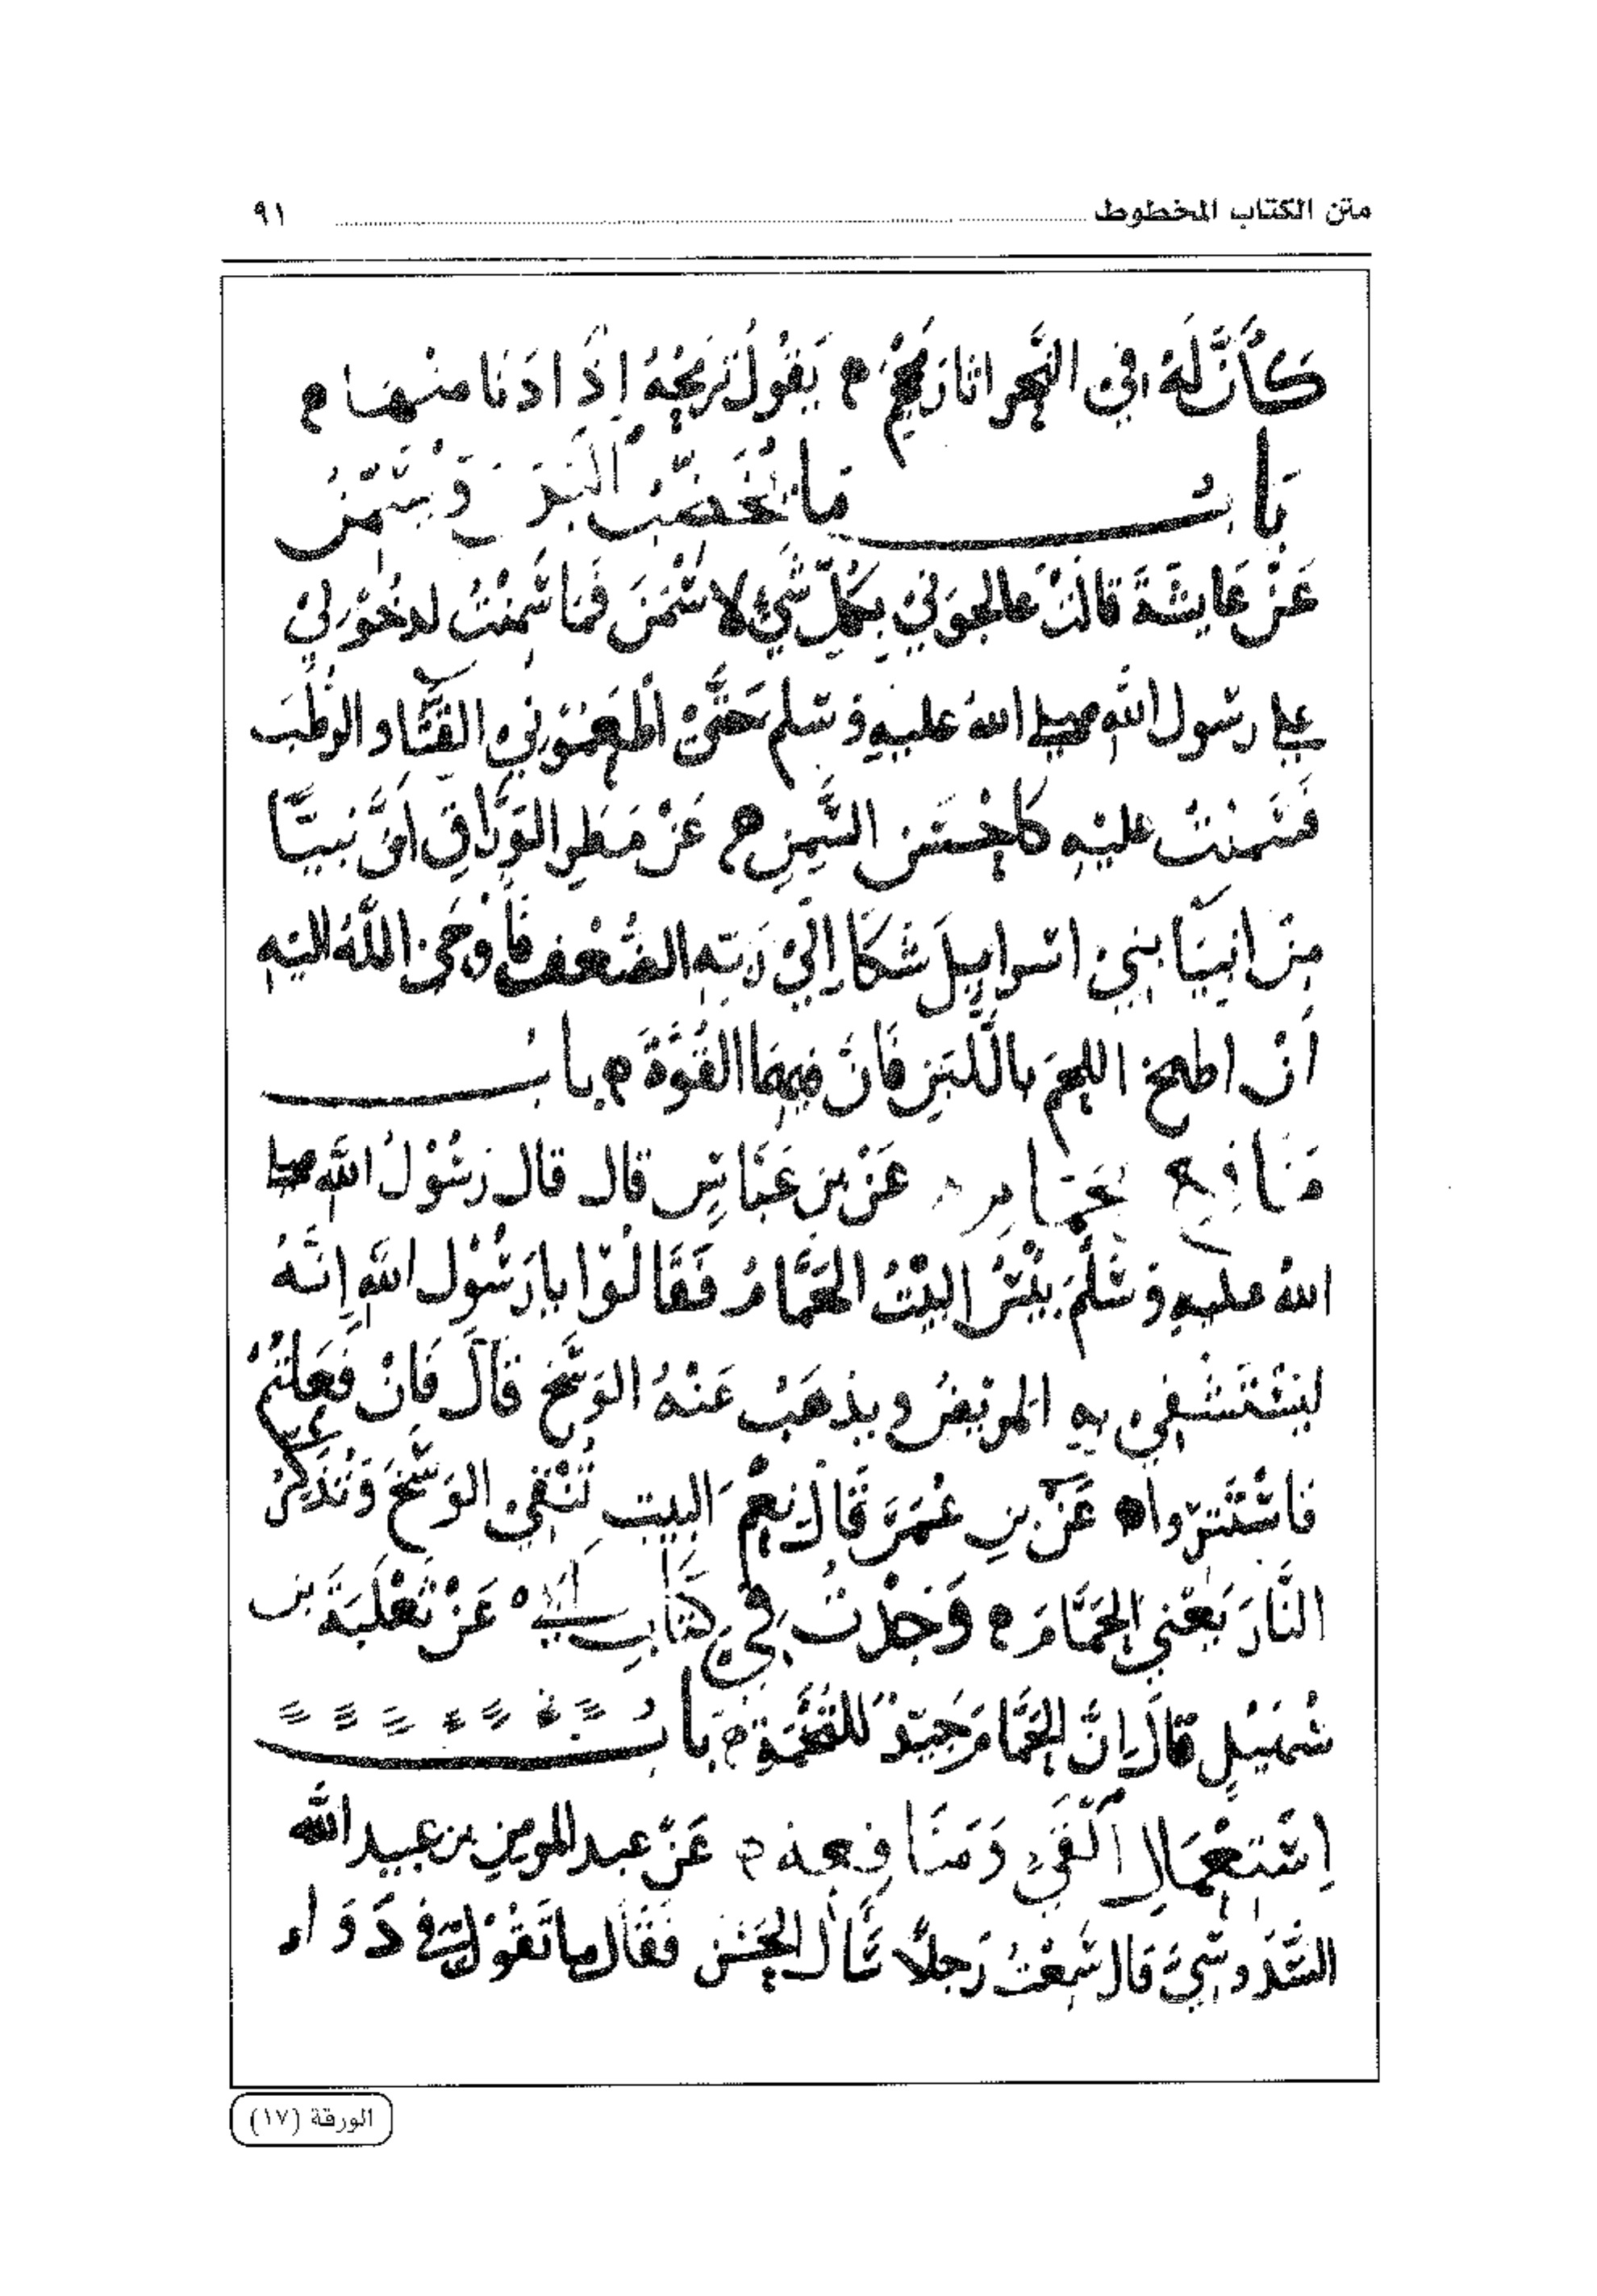 متن الكتاب المخطوط ٩١
كَأَنَّ لَهُ في النَّحْرِ يَقُولُ تُرِيحُهُ إِذَا دَنَا منهَا م
بَابُ مَا يُخَصِّبُ الْبَدَنَ وَيُسَمِّنُ
عَنْ عَايِشَةَ قالَتْ عَالجوني بِكُلِّ شَيْءٍ لاسْمَنَ فَمَا سَمِنْتُ لدخُوْلي
على رسُول الله صلى الله عليهِ وَسَلم حَتَّى أطْعَمُوْنِي القِثَّا والرُطَب
فَسَمِنْتُ عليْهِ كَاحْسَنِ السِّمَنِ م عَنْ مَطَرِ الوَرَّاقِ اَنَّ نَبيَّا
مِنْ انبيَا بني اسرايِيلَ شَكَا إليْ رَبّهِ الضُعْف فَأَوْحَى اللَّهُ اليْهِ
أنْ اطبخ اللحمَ باللَّبَنِ فَانَّ فيهمَا القُوَّةَ م باب
مَنَافِع الحَمَّامِ م عَنْ بن عَبَّاسٍ قال قال رَسُوْلُ الله صلى
اللهُ عليهِ وَسَلَّمَ بِئْسَ البَيْتُ الحَمَّامُ فَقَالُوْا يا رَسُوْل اللهِ إِنَّهُ
ليَسْتَشْفِي بِهِ المَرْيضُ ويذهَبُ عَنْهُ الوَسَخُ قَالَ فَانْ فَعَلتُمْ
فَاسْتَتِرْوا عَنْ بنِ عُمَرَ قَالَ نِعْمَ البيت تُنْقِي الوَسَخَ وَتُذَكِّرُ
النَّارَ يَعْني الحَمَّامَ م وَجَدْتُ في كتَابِ أبي عَنْ ثَعْلَبَةَ بن
سُهَيْلٍ قَالَ إنَّ الحَمَّامَ جَيّدٌ للتُّخَمَةِ م بَابُ
اِسْتِعْمَالِ القَيْءِ وَمَنَافِعِهِ م عَنْ عبد المومن بن عبيد الله
السَّدُوسِيِّ قَال سَمِعْتُ رَجلاً سَأل الحَسَن فَقَال ما تَقُوْلُ في دَوَاءِ
الورقة (١٧)